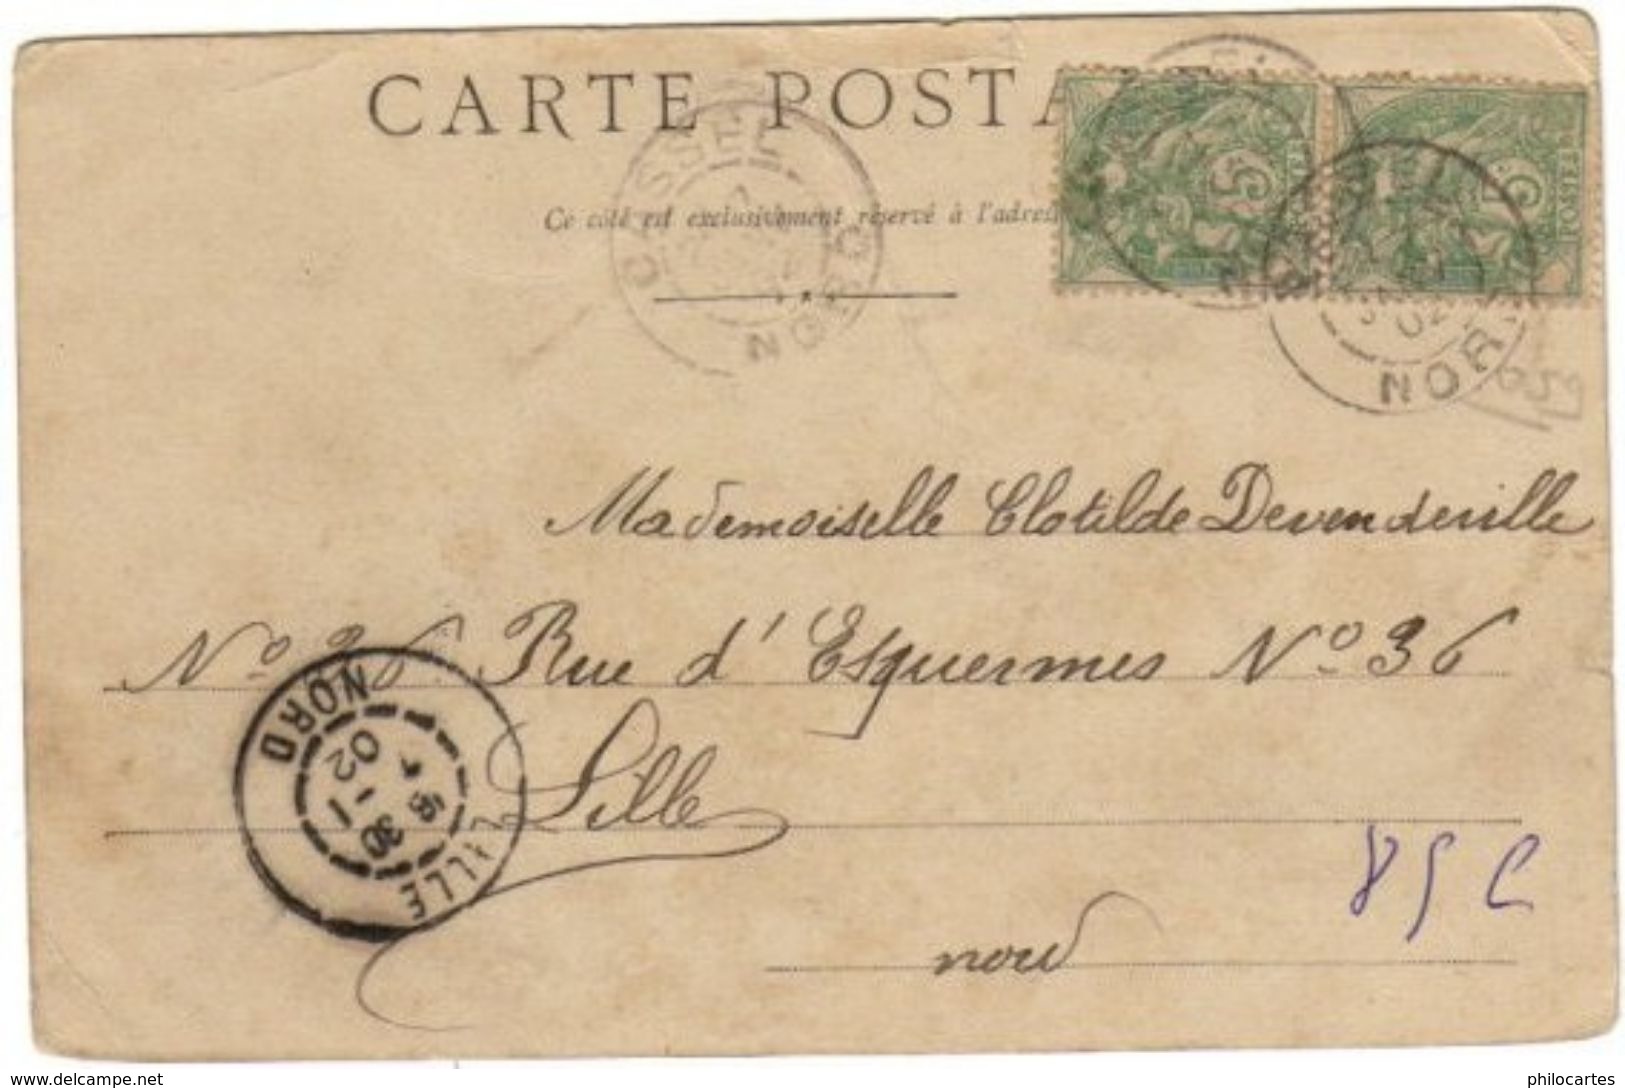 CARTE POSTA
Ce côté est exclusivement réservé à l'adresse
CASSEL
NORD
5
POSTES
02
NORD
Mademoiselle Clotilde Devendeville
N° 36 Rue d'Esquermes N° 36
Lille
nord
LILLE
NORD
30
1
02
85
www.delcampe.net
philocartes